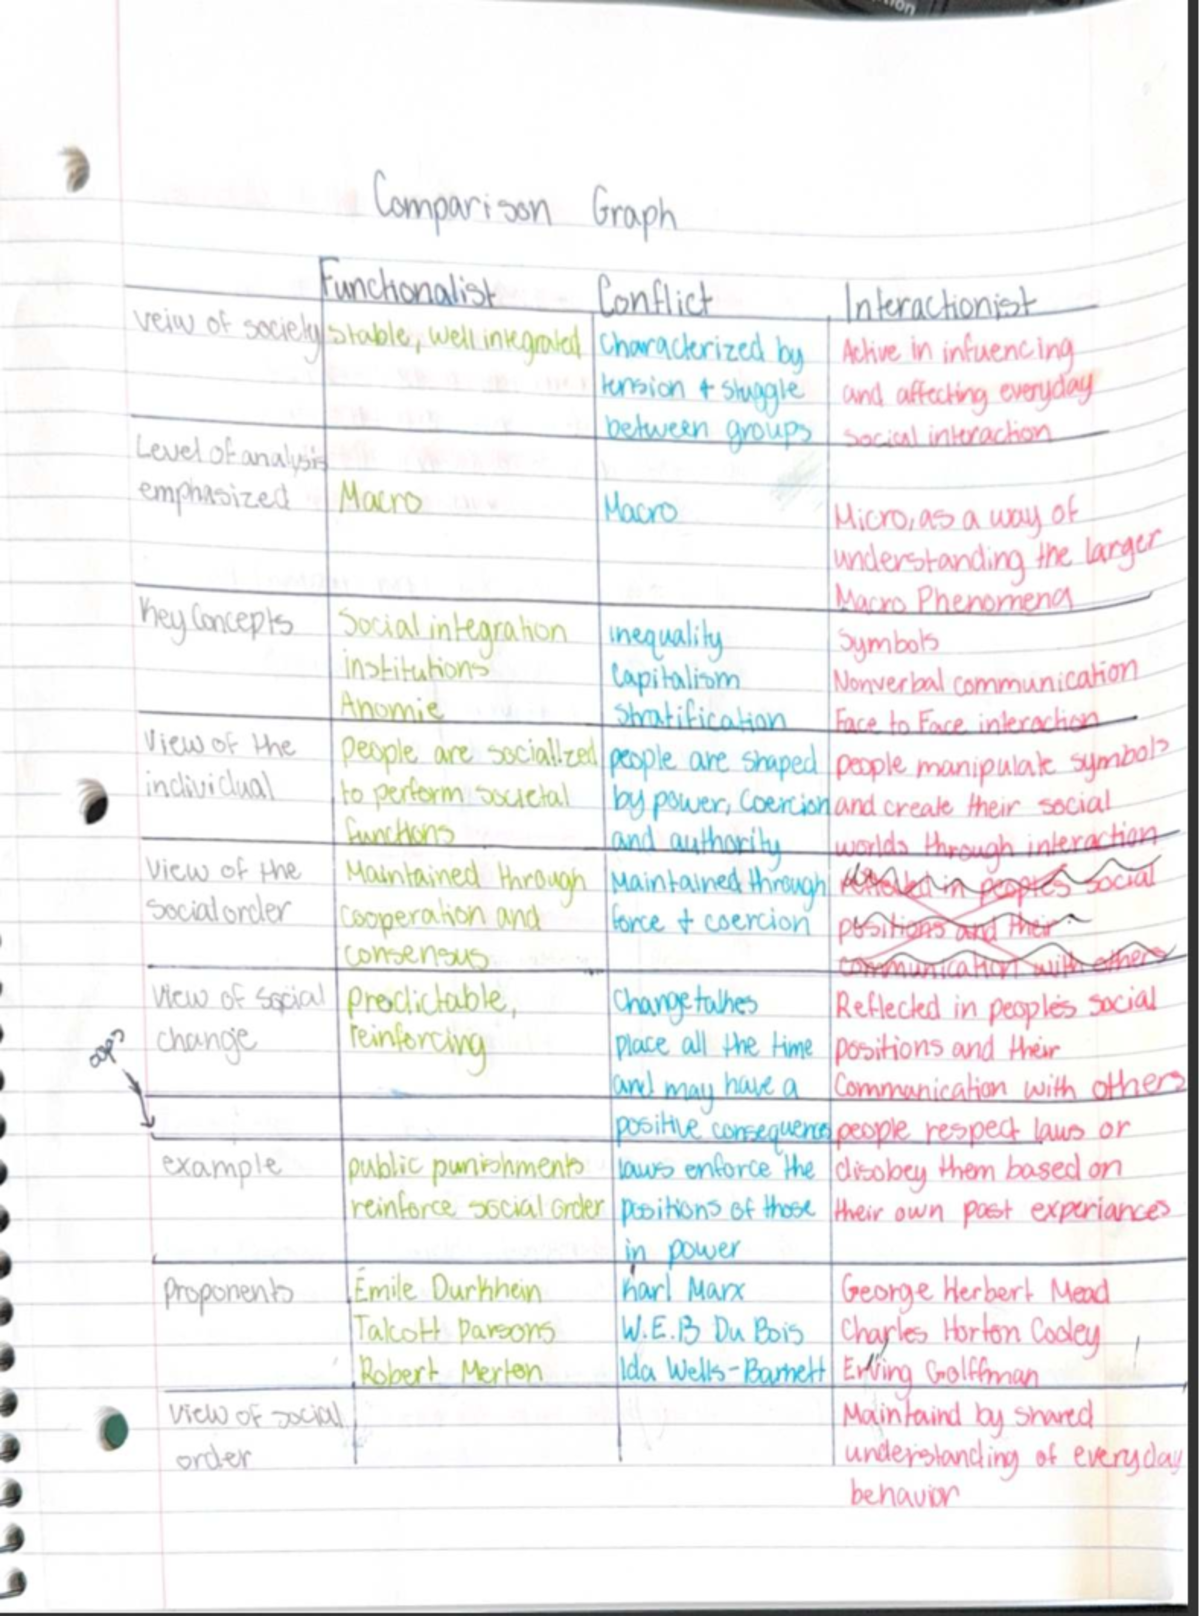 tion
Comparison Graph
Functionalist Conflict Interactionist
veiw of society stable, well integrated Characterized by Active in infuencing
tension + sluggle and affecting everyday
between groups social interaction
Level of analysis
emphasized Macro Macro Micro, as a way of
understanding the larger
Macro Phenomena
Key Concepts Social integration inequality Symbols
institutions Capitalism Nonverbal communication
Anomie Stratification Face to Face interaction
View of the people are socialized people are shaped people manipulate symbols
individual to perform societal by power, Coercion and create their social
functions and authority worlds through interaction
View of the Maintained through Maintained through in people's social
social order cooperation and force + coercion positions and their
consensus communication with others
View of social predictable, Change takes Reflected in people's social
change reinforcing place all the time positions and their
oops and may have a Communication with others
positive consequence people respect laws or
example public punishments laws enforce the disobey them based on
reinforce social order positions of those their own past experiances
in power
Proponents Emile Durkhein Karl Marx George Herbert Mead
Talcott Parsons W.E.B Du Bois Charles Horton Cooley
Robert Merton Ida Wells-Barnett Erving Golffman
View of social Maintaind by shared
order understanding of everyday
behavior